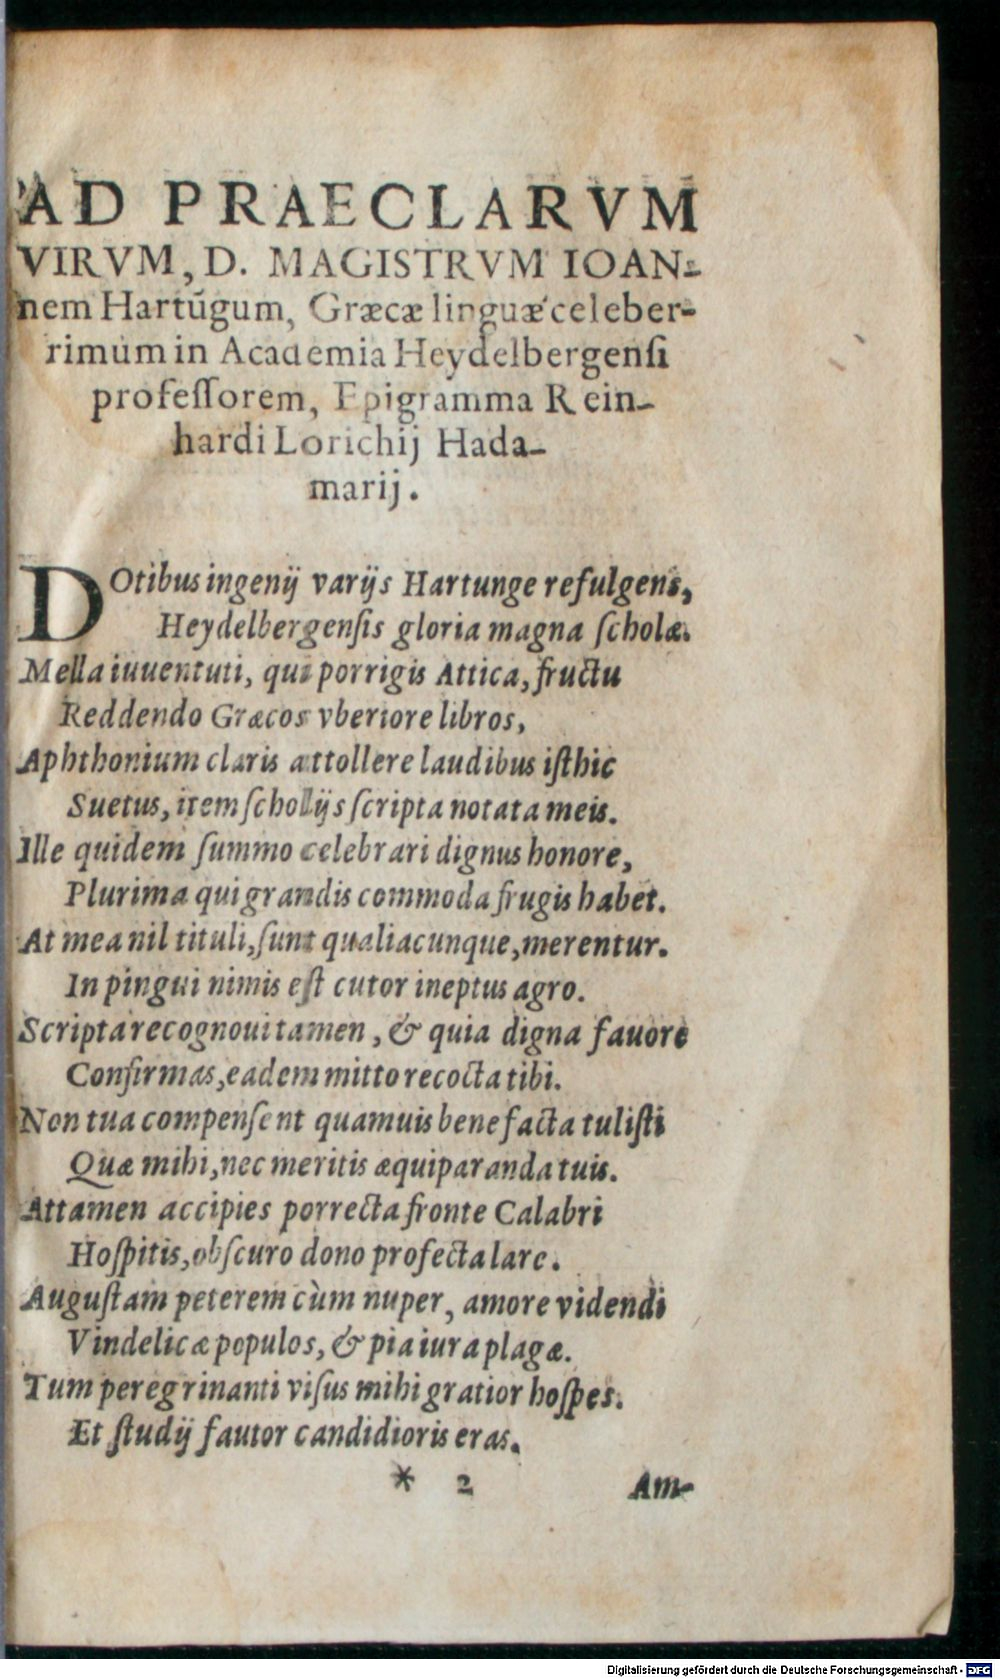 AD PRAECLARVM
VIRVM, D. MAGISTRVM IOAN-
nem Hartūgum, Græcæ linguæ celeber-
rimum in Academia Heydelbergensi
professorem, Epigramma Rein-
hardi Lorichij Hada-
marij.
DOtibus ingenij varijs Hartunge refulgens,
Heydelbergenſis gloria magna ſcholæ.
Mella iuuentuti, qui porrigis Attica, fructu
Reddendo Græcos vberiore libros,
Aphthonium claris attollere laudibus iſthic
Suetus, item ſcholijs ſcripta notata meis.
Ille quidem ſummo celebrari dignus honore,
Plurima qui grandis commoda frugis habet.
At mea nil tituli, ſunt qualiacunque, merentur.
In pingui nimis eſt cutor ineptus agro.
Scripta recognoui tamen, & quia digna fauore
Confirmas, eadem mitto recocta tibi.
Non tua compenſent quamuis benefacta tuliſti
Quæ mihi, nec meritis æquiparanda tuis.
Attamen accipies porrecta fronte Calabri
Hoſpitis, obſcuro dono profecta lare.
Auguſtam peterem cùm nuper, amore videndi
Vindelicæ populos, & pia iura plagæ.
Tum peregrinanti viſus mihi gratior hoſpes.
Et ſtudij fautor candidioris eras.
* 2 Am-
Digitalisierung gefördert durch die Deutsche Forschungsgemeinschaft - DFG